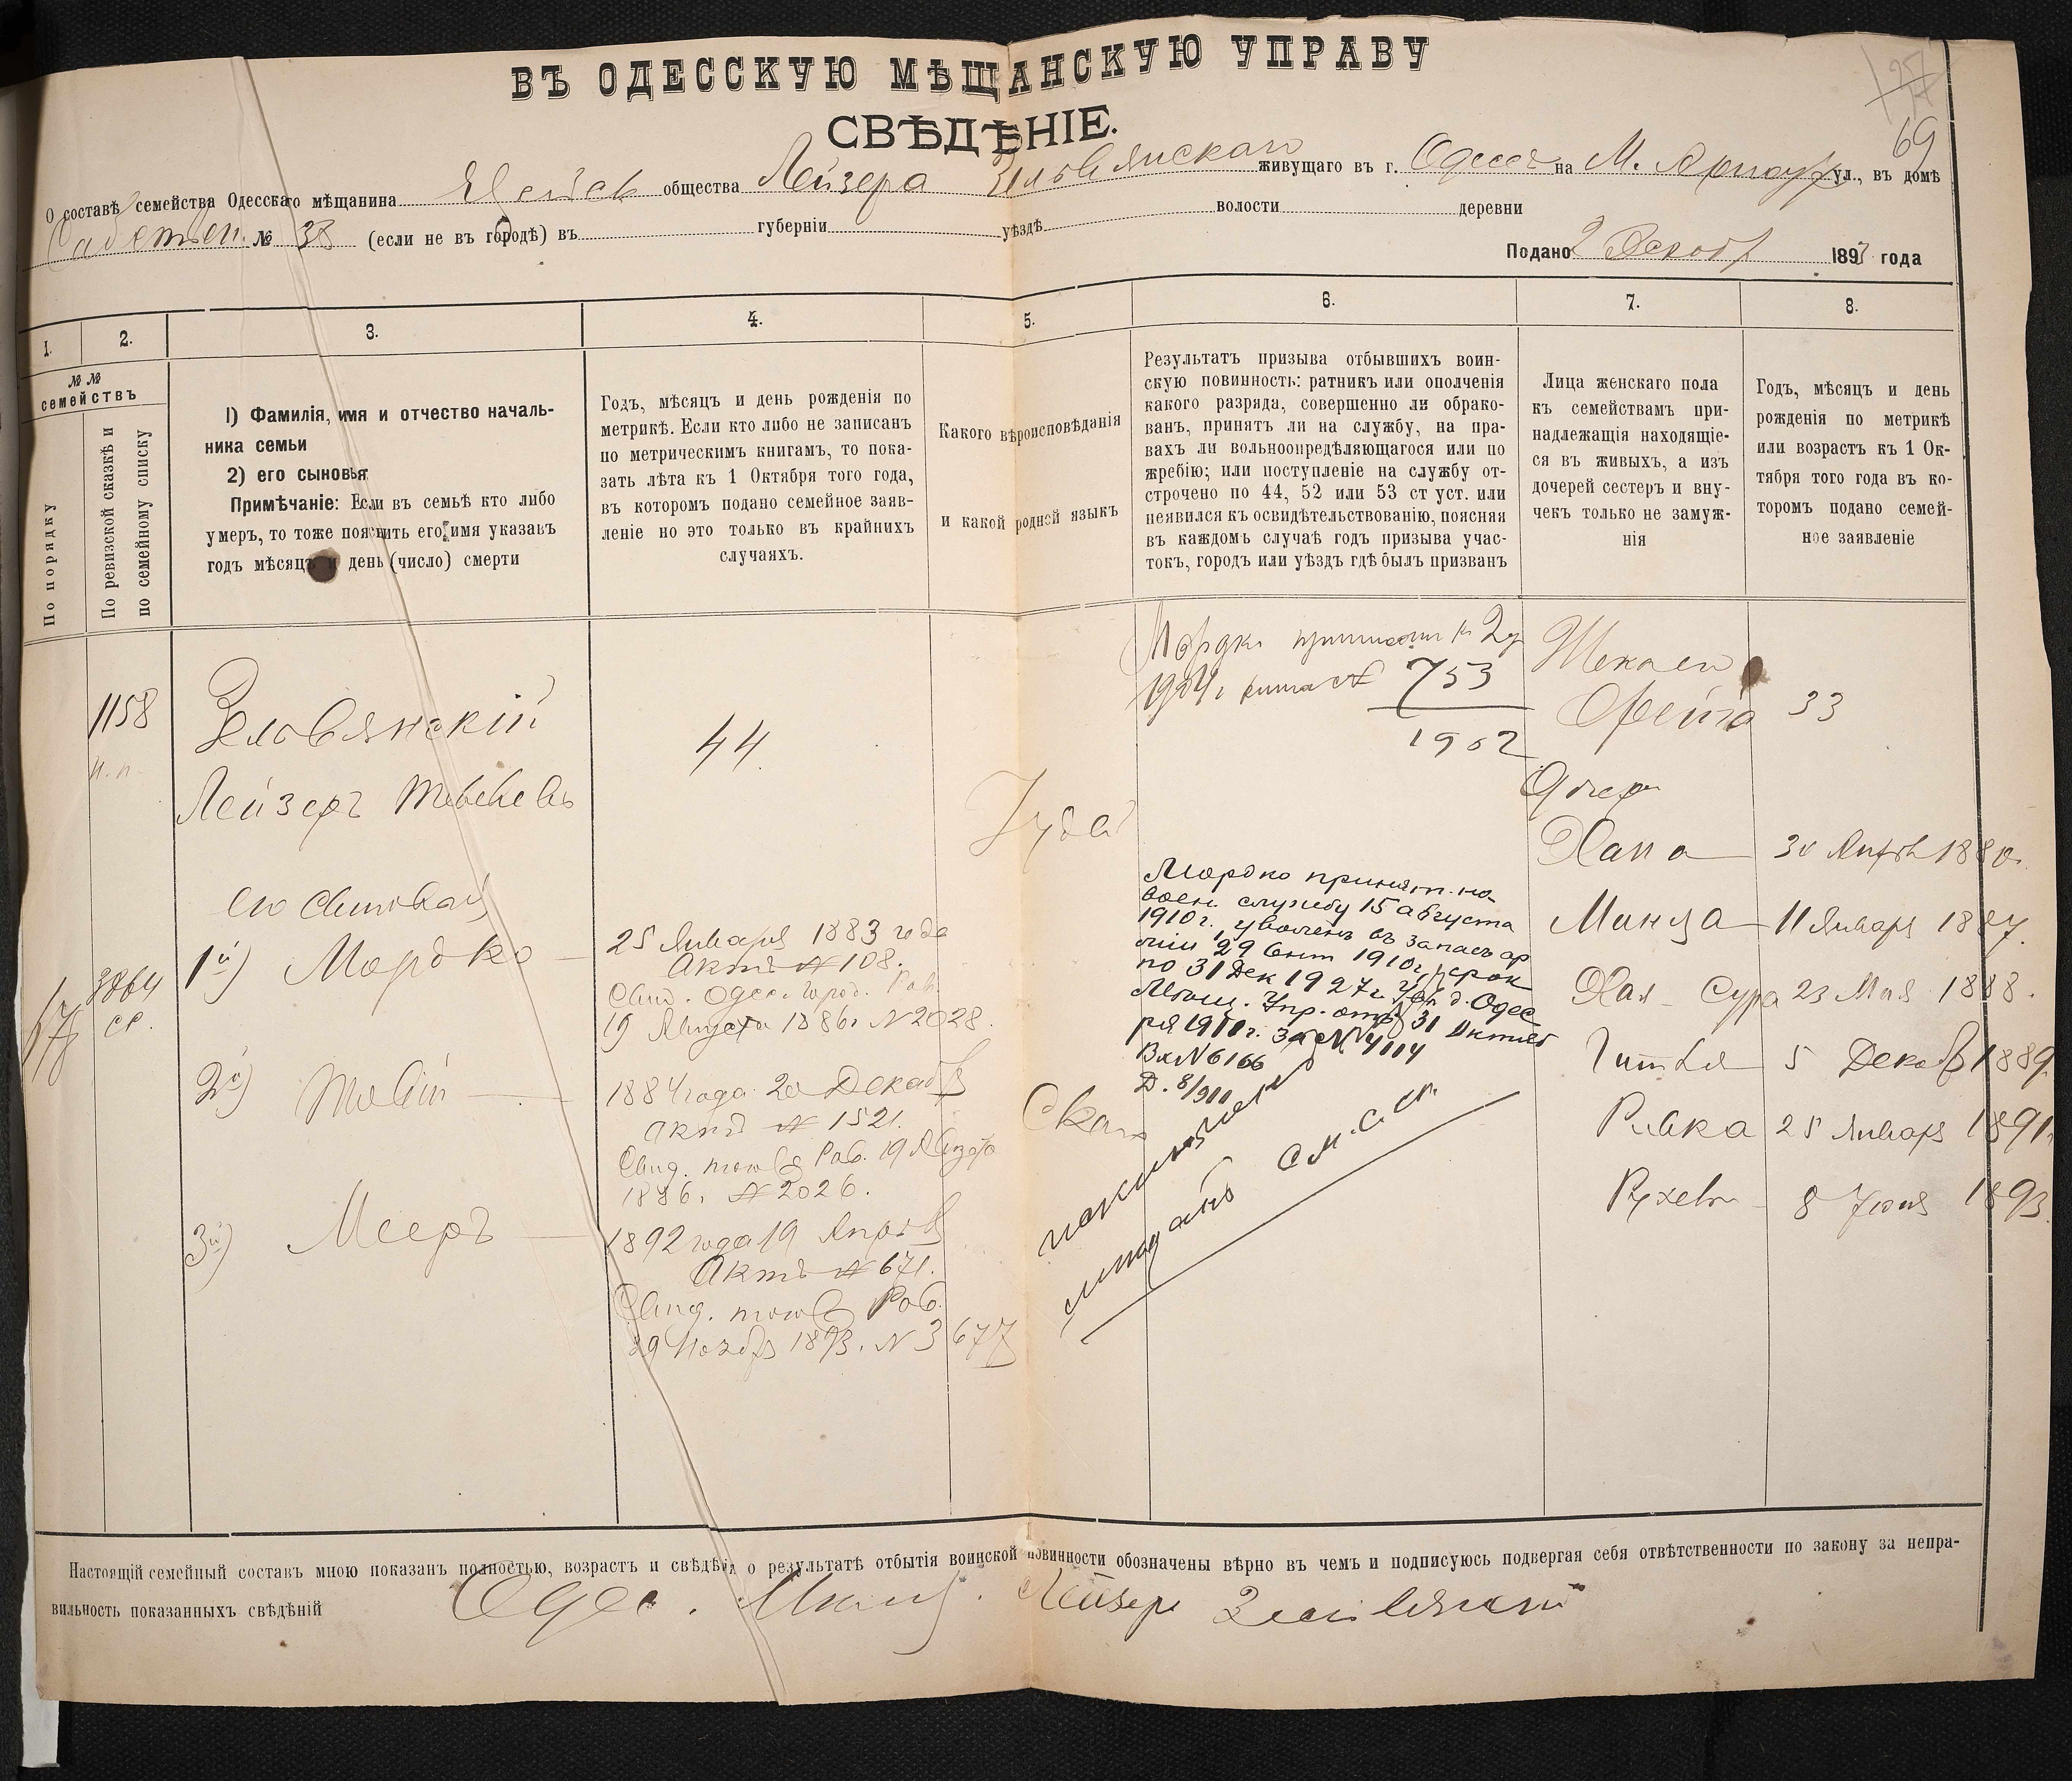 ВЪ ОДЕССКУЮ МѢЩАНСКУЮ УПРАВУ
СВѢДѢНІЕ.
69
О составѣ семейства Одесскаго мѣщанина общества Лейзера живущаго въ г. Одессѣ на М. Арнаут ул., въ домѣ
№ 38 (если не въ городѣ) въ губерніи уѣздѣ волости деревни
Подано 2 Декабр 1893 года
1. 2. 3. 4. 5. 6. 7. 8.
№ № семействъ
По порядку
По ревизской сказкѣ и
по семейному списку
1) Фамилія, имя и отчество началь-
ника семьи
2) его сыновья
Примѣчаніе: Если въ семьѣ кто либо
умеръ, то тоже пояснить его имя указавъ
годъ мѣсяцъ и день (число) смерти
Годъ, мѣсяцъ и день рожденія по
метрикѣ. Если кто либо не записанъ
по метрическимъ книгамъ, то пока-
зать лѣта къ 1 Октября того года,
въ которомъ подано семейное заяв-
леніе но это только въ крайнихъ
случаяхъ.
Какого вѣроисповѣданія
и какой родной языкъ
Результатъ призыва отбывшихъ воин-
скую повинность: ратникъ или ополченія
какого разряда, совершенно ли обрако-
ванъ, принятъ ли на службу, на пра-
вахъ ли вольноопредѣляющагося или по
жребію; или поступленіе на службу от-
строчено по 44, 52 или 53 ст уст. или
неявился къ освидѣтельствованію, поясняя
въ каждомъ случаѣ годъ призыва учас-
токъ, городъ или уѣздъ гдѣ былъ призванъ
Лица женскаго пола
къ семействамъ при-
надлежащія находящіе-
ся въ живыхъ, а изъ
дочерей сестеръ и вну-
чекъ только не замуж-
нія
Годъ, мѣсяцъ и день
рожденія по метрикѣ
или возрастъ къ 1 Ок-
тября того года въ ко-
торомъ подано семей-
ное заявленіе
1158
Зельвянскій
Лейзеръ
44
Іуд
753
1902
Жена его
Фейга 33
Дочери
Хана 30 Апрѣл 1880.
Минза 11 Января 1887.
Хая - Сура 23 Мая 1888.
Гитля 5 Декабр 1889.
Ривка 25 Января 1891.
Рухель 8 Іюня 1893.
его сыновья
3864
1й) Мордко
25 Января 1883 года
Актъ № 108.
Свид. Одес. Город. Рав.
19 Августа 1886г № 2028.
2й) Товій
1884 года 20 Декабр
Актъ № 1521.
Свид. того Рав. 19 Августа
1886г. № 2026.
3й) Мееръ
1892 года 19 Апрѣл
Актъ № 671.
Свид. того Рав.
29 Ноябр 1893. № 3677
Мордко принят. на
воен. службу 15 августа
1910г., уволенъ въ запасъ ар
міи 29 Сент 1910г, срок
по 31 Дек 1927г. д. Одес
Мѣщ. Упр. отъ 31 Октяб
ря 1910г. за № 4114
Вх № 6166
Д. 8/910
Настоящій семейный составъ мною показанъ полностью, возрастъ и свѣдѣнія о результатѣ отбытія воинской повинности обозначены вѣрно въ чемъ и подписуюсь подвергая себя отвѣтственности по закону за непра-
вильность показанныхъ свѣдѣній Одес. Мѣщ. Лейзеръ Зельвянскій